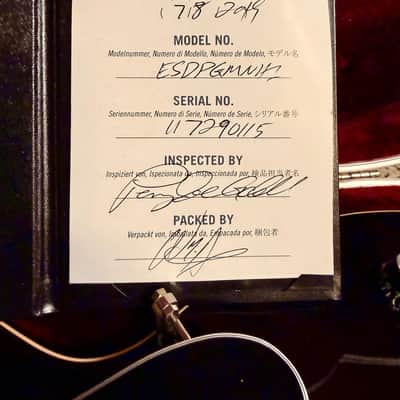 1718 2019
MODEL NO.
Modelnummer, Numero di Modello, Número de Modelo, モデル名
ESDPGMNH1
SERIAL NO.
Seriennummer, Numero di Serie, Número de Serie, シリアル番号
117290115
INSPECTED BY
Inspiziert von, Ispezionata da, Inspeccionada por, 検品担当者名
PACKED BY
Verpackt von, Imballata da, Empacada por, 梱包者